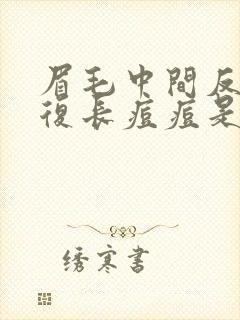 眉毛中間反
復長痘痘是
绣寒書